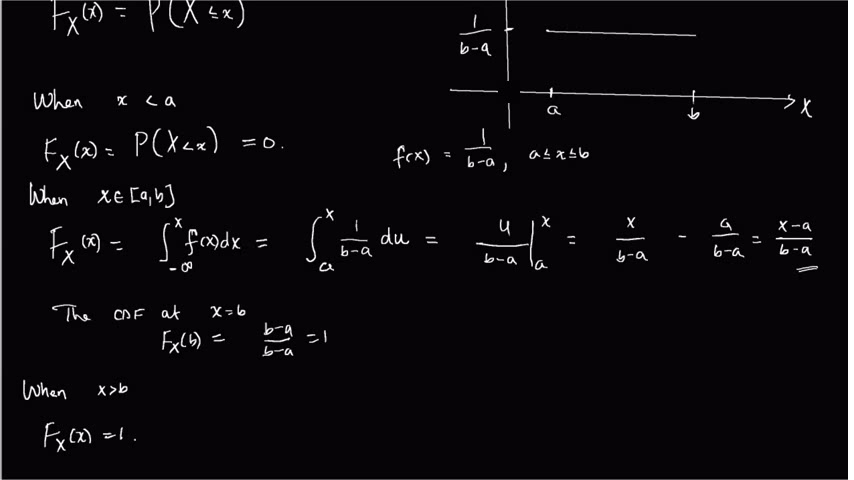 F_X(x) = P(X ≤ x)
1/(b-a)
a b X
When x < a
F_X(x) = P(X < x) = 0.
f(x) = 1/(b-a), a ≤ x ≤ b
When x ∈ [a,b]
F_X(x) = ∫_{-∞}^{x} f(x)dx = ∫_{a}^{x} 1/(b-a) du = u/(b-a) |_{a}^{x} = x/(b-a) - a/(b-a) = (x-a)/(b-a)
The CDF at x=b
F_X(b) = (b-a)/(b-a) = 1
When x>b
F_X(x) = 1.